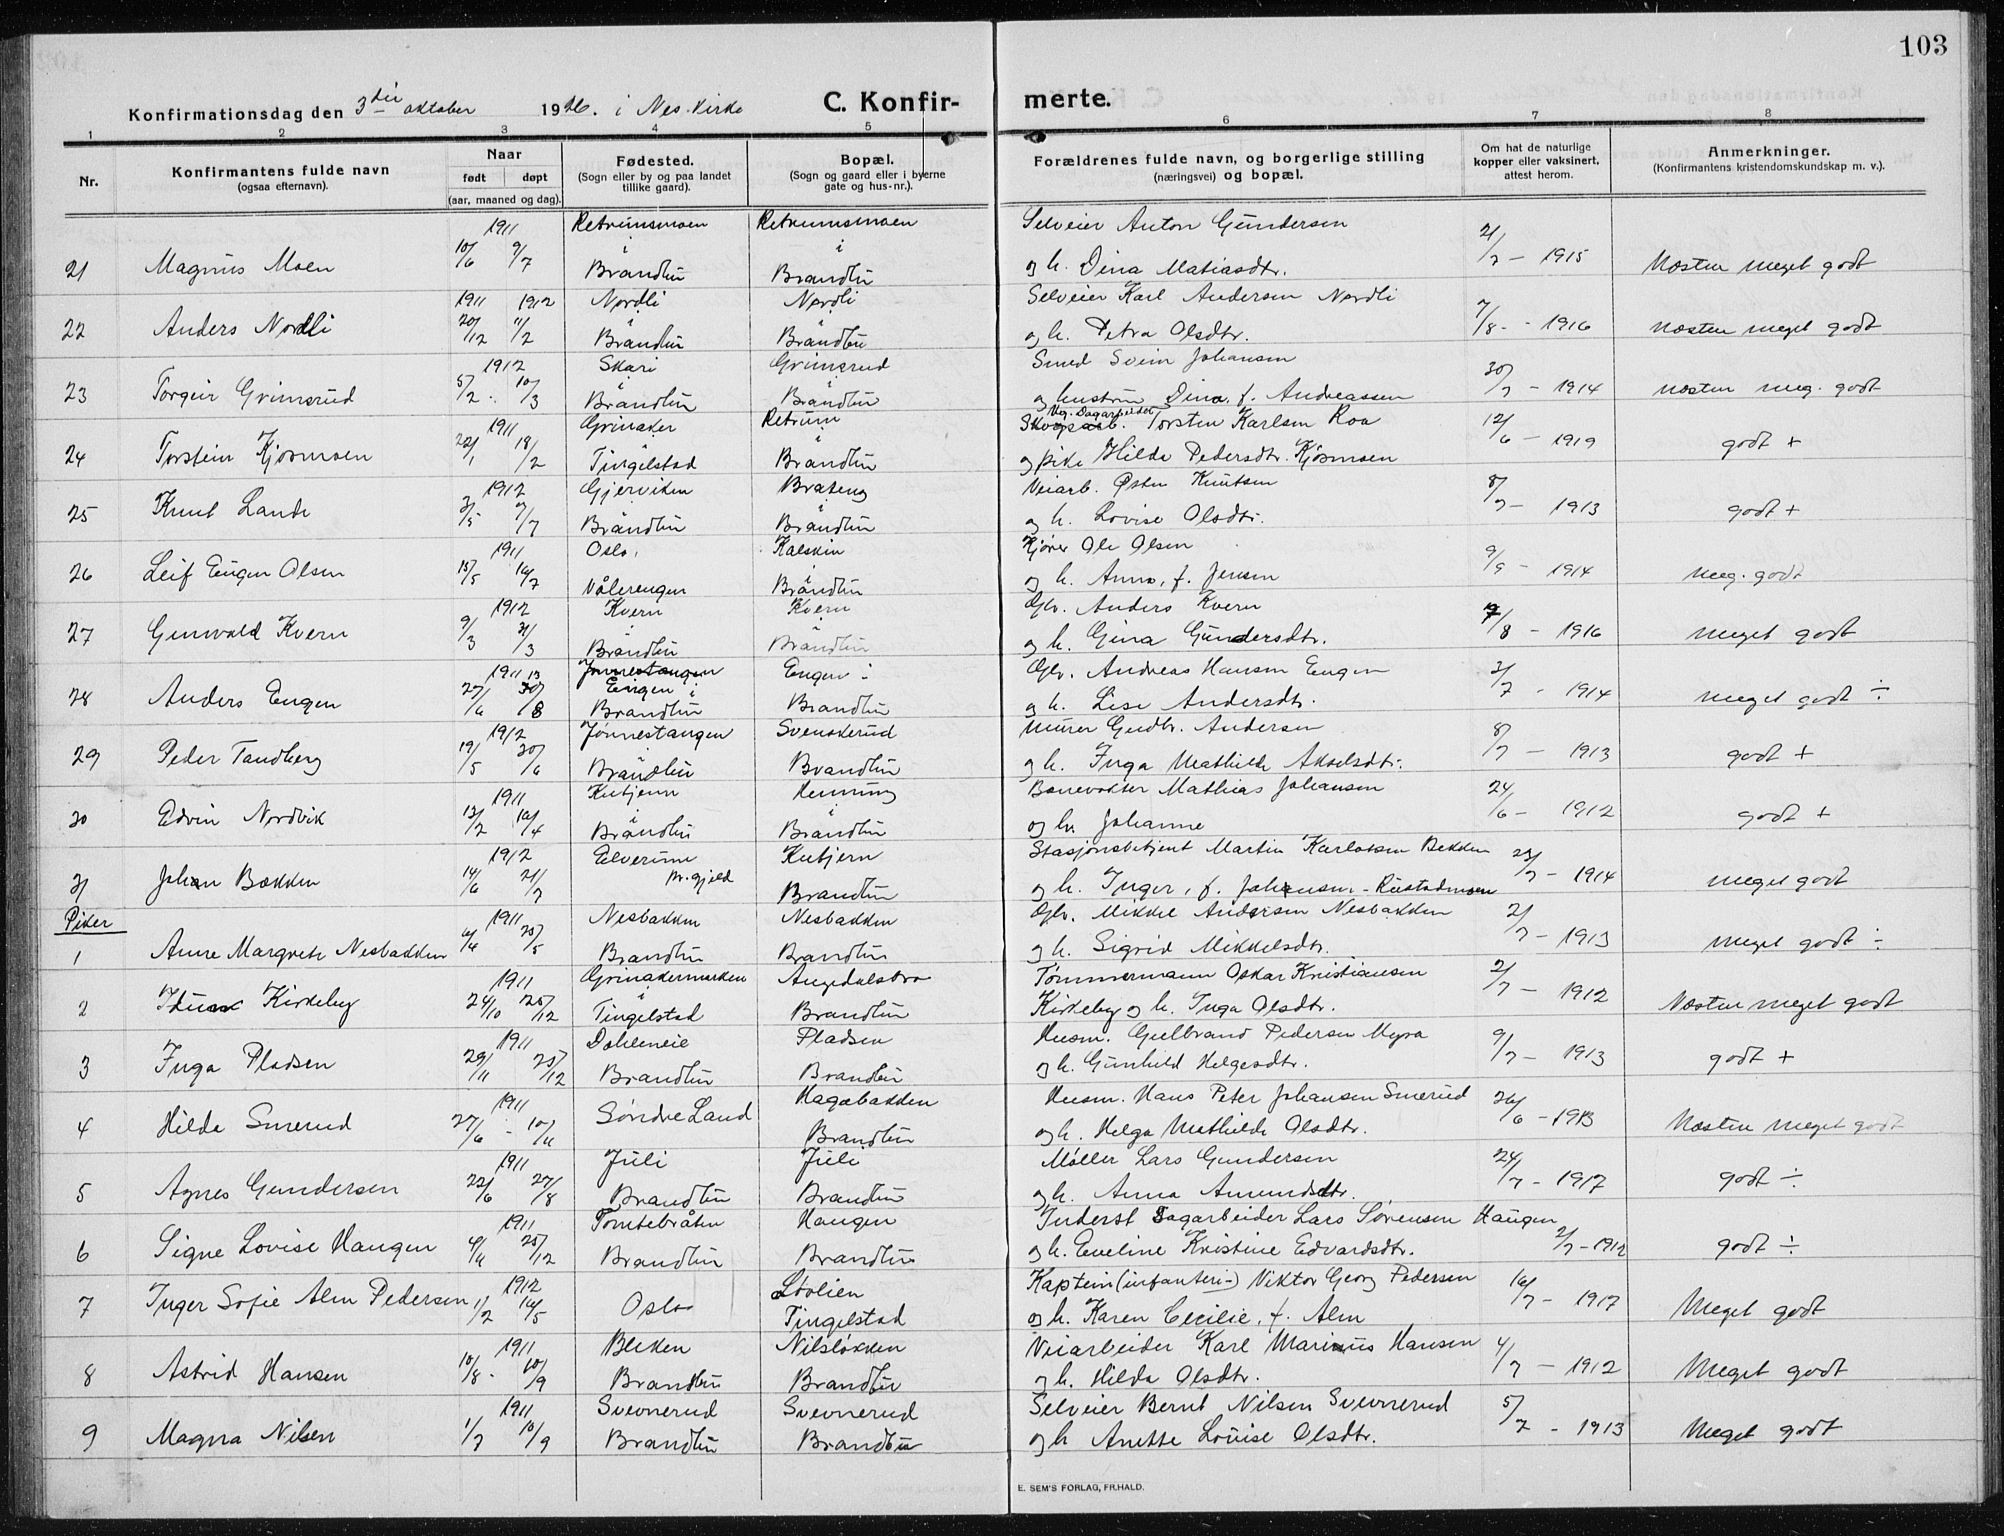 103
Konfirmationsdag den 3die oktober 1926. i Nes Kirke
C. Konfir- merte.
1 2 3 4 5 6 7 8
Nr.
Konfirmantens fulde navn
(ogsaa efternavn).
Naar
født døpt
(aar, maaned og dag).
Fødested.
(Sogn eller by og paa landet
tillike gaard).
Bopæl.
(Sogn og gaard eller i byerne
gate og hus-nr.).
Forældrenes fulde navn, og borgerlige stilling
(næringsvei) og bopæl.
Om hat de naturlige
kopper eller vaksinert,
attest herom.
Anmerkninger.
(Konfirmantens kristendomskundskap m. v.).
1911 Retrumsmoen Retrumsmoen Selveier Anton Gundersen
21 Magnus Moen 10/6 9/7 i Brandbu i Brandbu og h. Dina Matiasdtr. 21/7 - 1915 Næsten meget godt
1911 1912 Nordli Nordli Selveier Karl Andersen Nordli
22 Anders Nordli 20/12 11/2 i Brandbu i Brandbu og h. Petra Olsdtr. 7/8 - 1916 næsten meget godt
1912 Skari Grimsrud Smed Svein Johansen
23 Torgeir Grimsrud 5/2 10/3 i Brandbu i Brandbu og hustru Dina f. Andreassen 30/7 - 1914 næsten meg. godt
1911 Grinaker Retrum Skogsarb. Vg. Dagarbeider Torsten Karlsen Roa
24 Torstein Kjosmoen 22/1 18/2 i Tingelstad i Brandbu og pike Hilda Pedersdtr. Kjosmoen 12/6 - 1919 godt +
1912 Gjerviken Brateng Veiarb. Østen Knutsen
25 Knut Lande 3/5 7/7 i Brandbu i Brandbu og h. Lovise Olsdtr. 8/7 - 1913 godt +
1911 Oslo, Kalskin Kjører Ole Olsen
26 Leif Eugen Olsen 15/5 16/7 Vålerengen i Brandbu og h. Anna, f. Jensen 9/9 - 1914 meg. godt
1912 Kvern Kvern Gbr. Anders Kvern
27 Gunvald Kvern 9/3 31/3 i Brandbu i Brandbu og h. Gina Gundersdtr. 7/8 - 1916 meget godt
1911 13 Jønnestangen Engen i Engen i Gbr. Andreas Hansen Engen
28 Anders Engen 27/6 30/8 Brandbu Brandbu og h. Lise Andersdtr. 3/7 - 1914 meget godt ÷
1912 Jønnestangen Svenskerud Murer Gudbr. Andersen
29 Peder Tandberg 19/5 30/6 i Brandbu Brandbu og h. Inga Mathilde Akselsdtr. 8/7 - 1913 godt +
1911 Kutjern Henning Banevokter Mathias Johansen
30 Edvin Nordvik 12/2 16/4 i Brandbu i Brandbu og h. Johanne 24/6 - 1912 godt +
1912 Elverum Kutjern Stasjonsbetjent Martin Karlotsen Bekken
31 Johan Bækken 14/6 21/7 pr.gjeld Brandbu og h. Inger, f. Johansen - Rustadmoen 23/7 - 1914 meget godt
Piker 1911 Nesbakken Nesbakken Gbr. Mikkel Andersen Nesbakken
1 Anne Margrete Nesbakken 6/4 25/5 Brandbu Brandbu og h. Sigrid Mikkelsdtr. 2/7 - 1913 meget godt ÷
1911 Grinakermarken Angedalsbro Tømmermann Oskar Kristiansen
2 Kirkeby 24/10 25/12 i Tingelstad Brandbu Kirkeby og h. Inga Olsdtr. 2/7 - 1912 Næsten meget godt
1911 Dahleneie Pladsen Husm. Gulbrand Pedersen Myra
3 Inga Pladsen 29/11 25/12 Brandbu Brandbu og h. Gunhild Helgesdtr. 9/7 - 1913 godt +
1911 Søndre Land Hagabakken Husm. Hans Peter Johansen Smerud
4 Hilda Smerud 27/6 - 10/11 Brandbu og h. Helga Mathilde Olsdtr. 26/6 - 1913 Næsten meget godt
1911 Juli Juli Møller Lars Gundersen
5 Agnes Gundersen 22/6 27/8 Brandbu Brandbu og h. Anna Amundsdtr. 24/7 - 1917 godt ÷
1911 Tomtebråten Haugen Inderst Sagarbeider Lars Sørensen Haugen
6 Signe Lovise Haugen 4/11 25/12 Brandbu Brandbu og h. Eveline Kristine Edvardsdtr. 2/7 - 1912 godt ÷
1912 Løvlien Kaptein (infanteri-) Viktor Georg Pedersen
7 Inger Sofie Alm Pedersen 1/2 16/5 Oslo Tingelstad og h. Karen Cecilie, f. Alm 16/7 - 1917 Meget godt
1911 Bleken Nilsløkken Veiarbeider Karl Marinius Hansen
8 Astrid Hansen 10/8 - 10/9 Brandbu Brandbu og h. Hilda Olsdtr. 4/7 - 1912 Meget godt
1911 Svevnerud Svevnerud Selveier Bernt Nilsen Svevnerud
9 Magna Nilsen 1/7 10/9 Brandbu Brandbu og h Anette Louise Olsdtr. 5/7 - 1913 Meget godt
E. SEM'S FORLAG, FR.HALD.